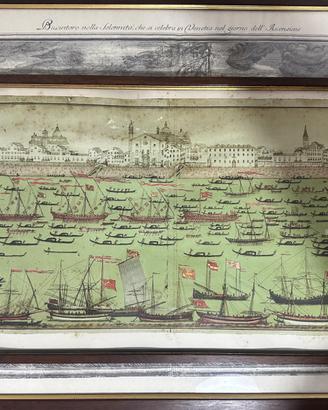 Bucintoro nella Solennità, che si celebra in Venetia nel giorno dell' Ascensione